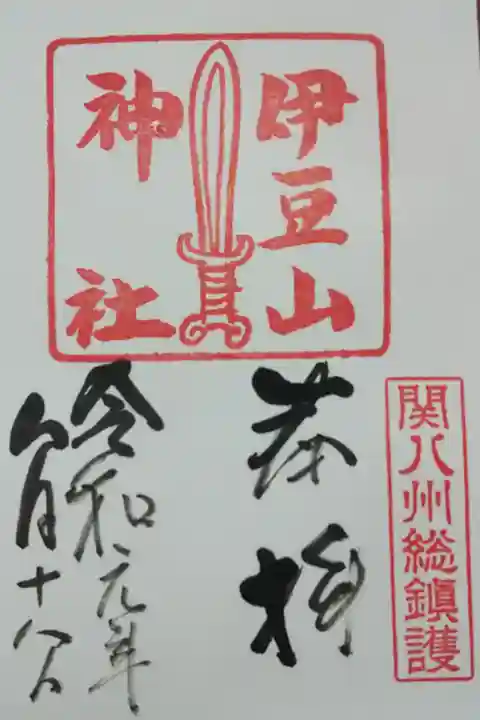 伊豆山
神社
関八州総鎮護
奉拝
令和元年
八月十八日